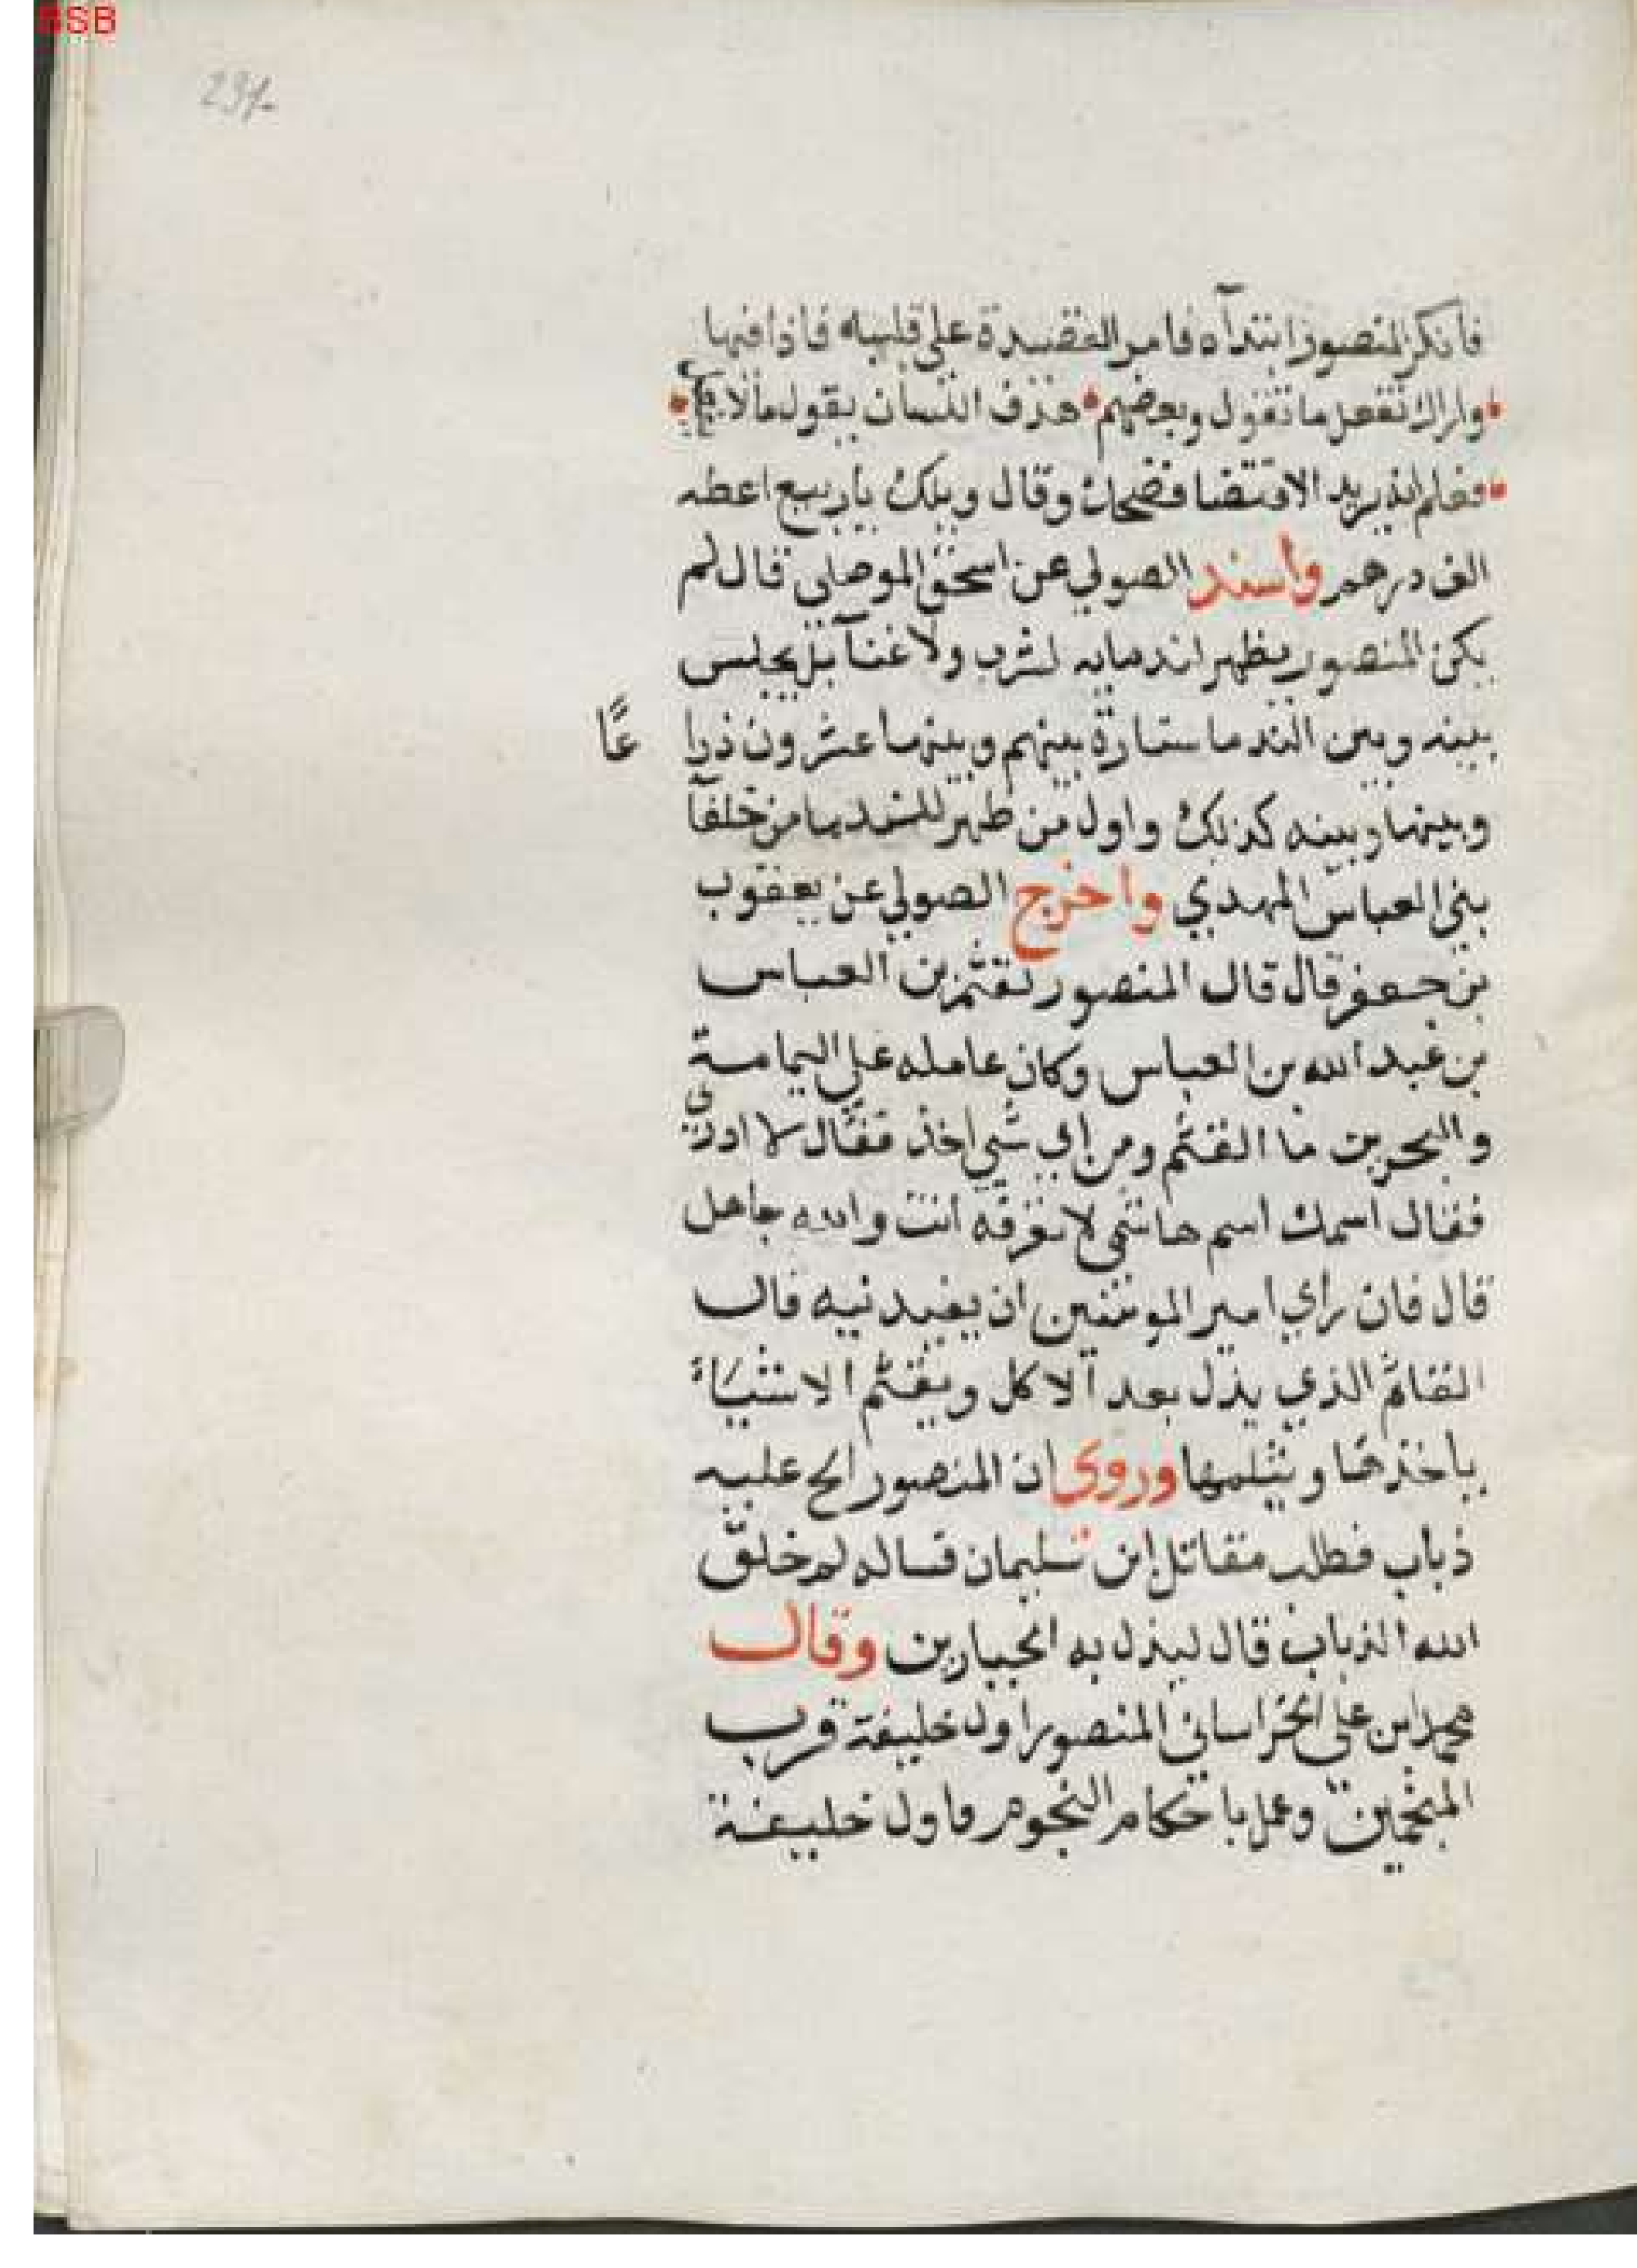 BSB
237.
فانكر المنصور ابتداه فامر القصيدة على قلبه فاذا فيها
واراك تفعل ما تقول وبعضهم مذق اللسان يقول ما لا يفعل
فعلم انه يريد الاقتضا فضحك وقال ويلك يا ربيع اعطه
الف درهم واسند الصولي عن اسحق الموصلي قال لم
يكن المنصور يظهر لندمايه لشرب ولا غنآ بل يجلس
بينه وبين الندما ستارة بينهم وبينها عشرون ذرا عًا
وبينها وبينه كذلك واول من ظهر للندما من خلفآ
بني العباس المهدي واخرج الصولي عن يعقوب
بن جعفر قال قال المنصور لقثم بن العباس
بن عبد الله بن العباس وكان عامله علي اليمامة
والبحرين ما القثم ومن اي شي اخذ فقال لا ادري
فقال اسمك اسم هاشمي لا تعرفه انت والله جاهل
قال فان راي امير المومنين ان يفيدنيه قال
القثم الذي ينزل بعد الاكل ويقثم الاشيآء
ياخذها ويثلمها وروي ان المنصور الح عليه
ذباب فطلب مقاتل ابن سليمان فساله لم خلق
الله الذباب قال ليذل به الجبارين وقال
محمد ابن علي الخراساني المنصور اول خليفة قرب
المنجمين وعمل باحكام النجوم واول خليفة